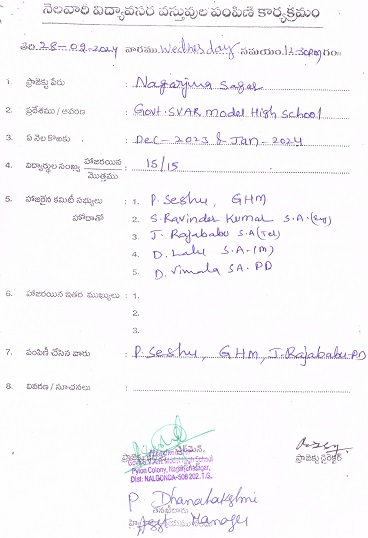 నెలవారి విద్యావసర వస్తువుల పంపిణి కార్యక్రమం
తేది. 28-02-2024 వారము Wednesday సమయం 12:30PM గం॥
1. ప్రాజెక్టు పేరు : Nagarjuna Sagar
2. ప్రదేశము / ఆవరణ : Govt. SVAR Model High School
3. ఏ నెల కొఱకు : Dec - 2023 & Jan - 2024
4. విద్యార్థుల సంఖ్య హాజరయిన / మొత్తము : 15/15
5. హాజరైన కమిటి సభ్యులు : 1. P. Seshu, GHM
హోదాతో 2. S. Ravinder Kumar S.A (Eng)
3. J. Rajababu S.A (Tel)
4. D. Lalu S.A. (M)
5. D. Vimala SA. PD
6. హాజరయిన ఇతర ముఖ్యులు : 1.
2.
3.
7. పంపిణీ చేసిన వారు : P. Seshu, GHM, J. Rajababu. PD
8. వివరణ / సూచనలు :
ఛైర్మెన్. ప్రాజెక్టు డైరెక్టర్
Pylon Colony, Nagarjunasagar,
Dist: NALGONDA-508 202. T.G.
P. Dhanalakshmi
Manager